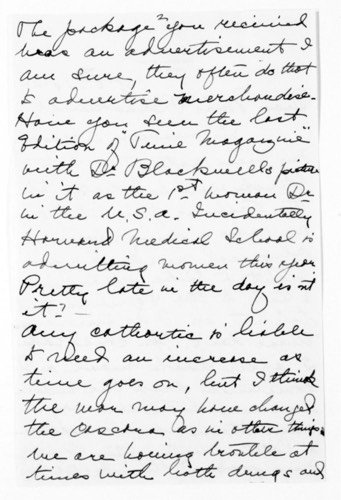 The package "you received
was an advertisement I
am sure, they often do that
to advertise merchandise.
Have you seen the last
Edition of "Time Magazine"
with Dr Blackwell's picture
in it as the 1st woman Dr
in the U.S.a. Incidentally
Harvard Medical School is
admitting women this year
Pretty late in the day is'nt
it? –
Any cathartic is liable
to need an increase as
time goes on, but I think
the war may have changed
the Cascara as in other things
we are having trouble at
times with both drugs and